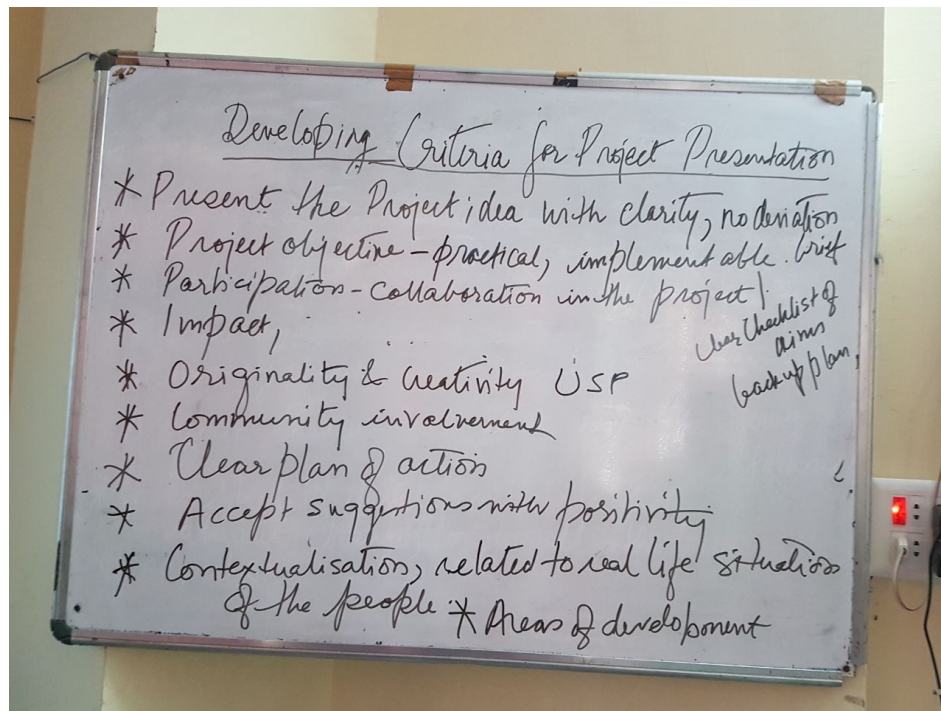 Developing Criteria for Project Presentation
* Present the Project idea with clarity, no deviation
* Project objective - practical, implementable. brief
* Participation - collaboration in the project
* Impact,
clear checklist of
aims
backup plan,
* Originality & Creativity USP
* Community involvement
* Clear plan of action
* Accept suggestions with positivity
* Contextualisation, related to real life situation
of the people. * Areas of development